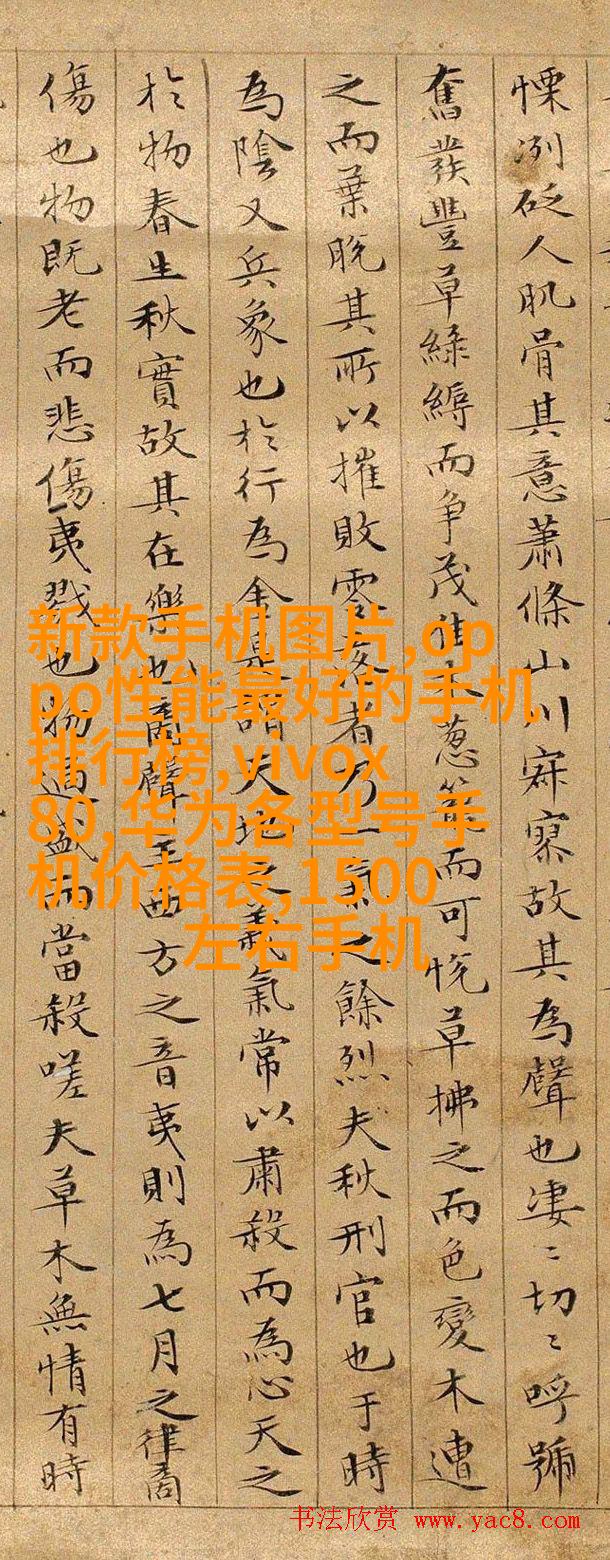 慄冽砭人肌骨其意蕭條山川寂寥故其為聲也淒〻切〻呼號
奮發豐草綠縟而争茂佳木葱籠而可悅草拂之而色變木遭
之而葉脫其所以摧敗零落者乃一氣之餘烈夫秋刑官也于時
為陰又兵象也於行為金是謂天地之義氣常以肅殺而為心天之
於物春生秋實故其在樂也商聲主西方之音夷則為七月之律商
傷也物既老而悲傷夷戮也物過盛而當殺嗟夫草木無情有時
新款手机图片,op
po性能最好的手机
排行榜,vivox
80,华为各型号手
机价格表,1500
左右手机
书法欣赏 www.yac8.com